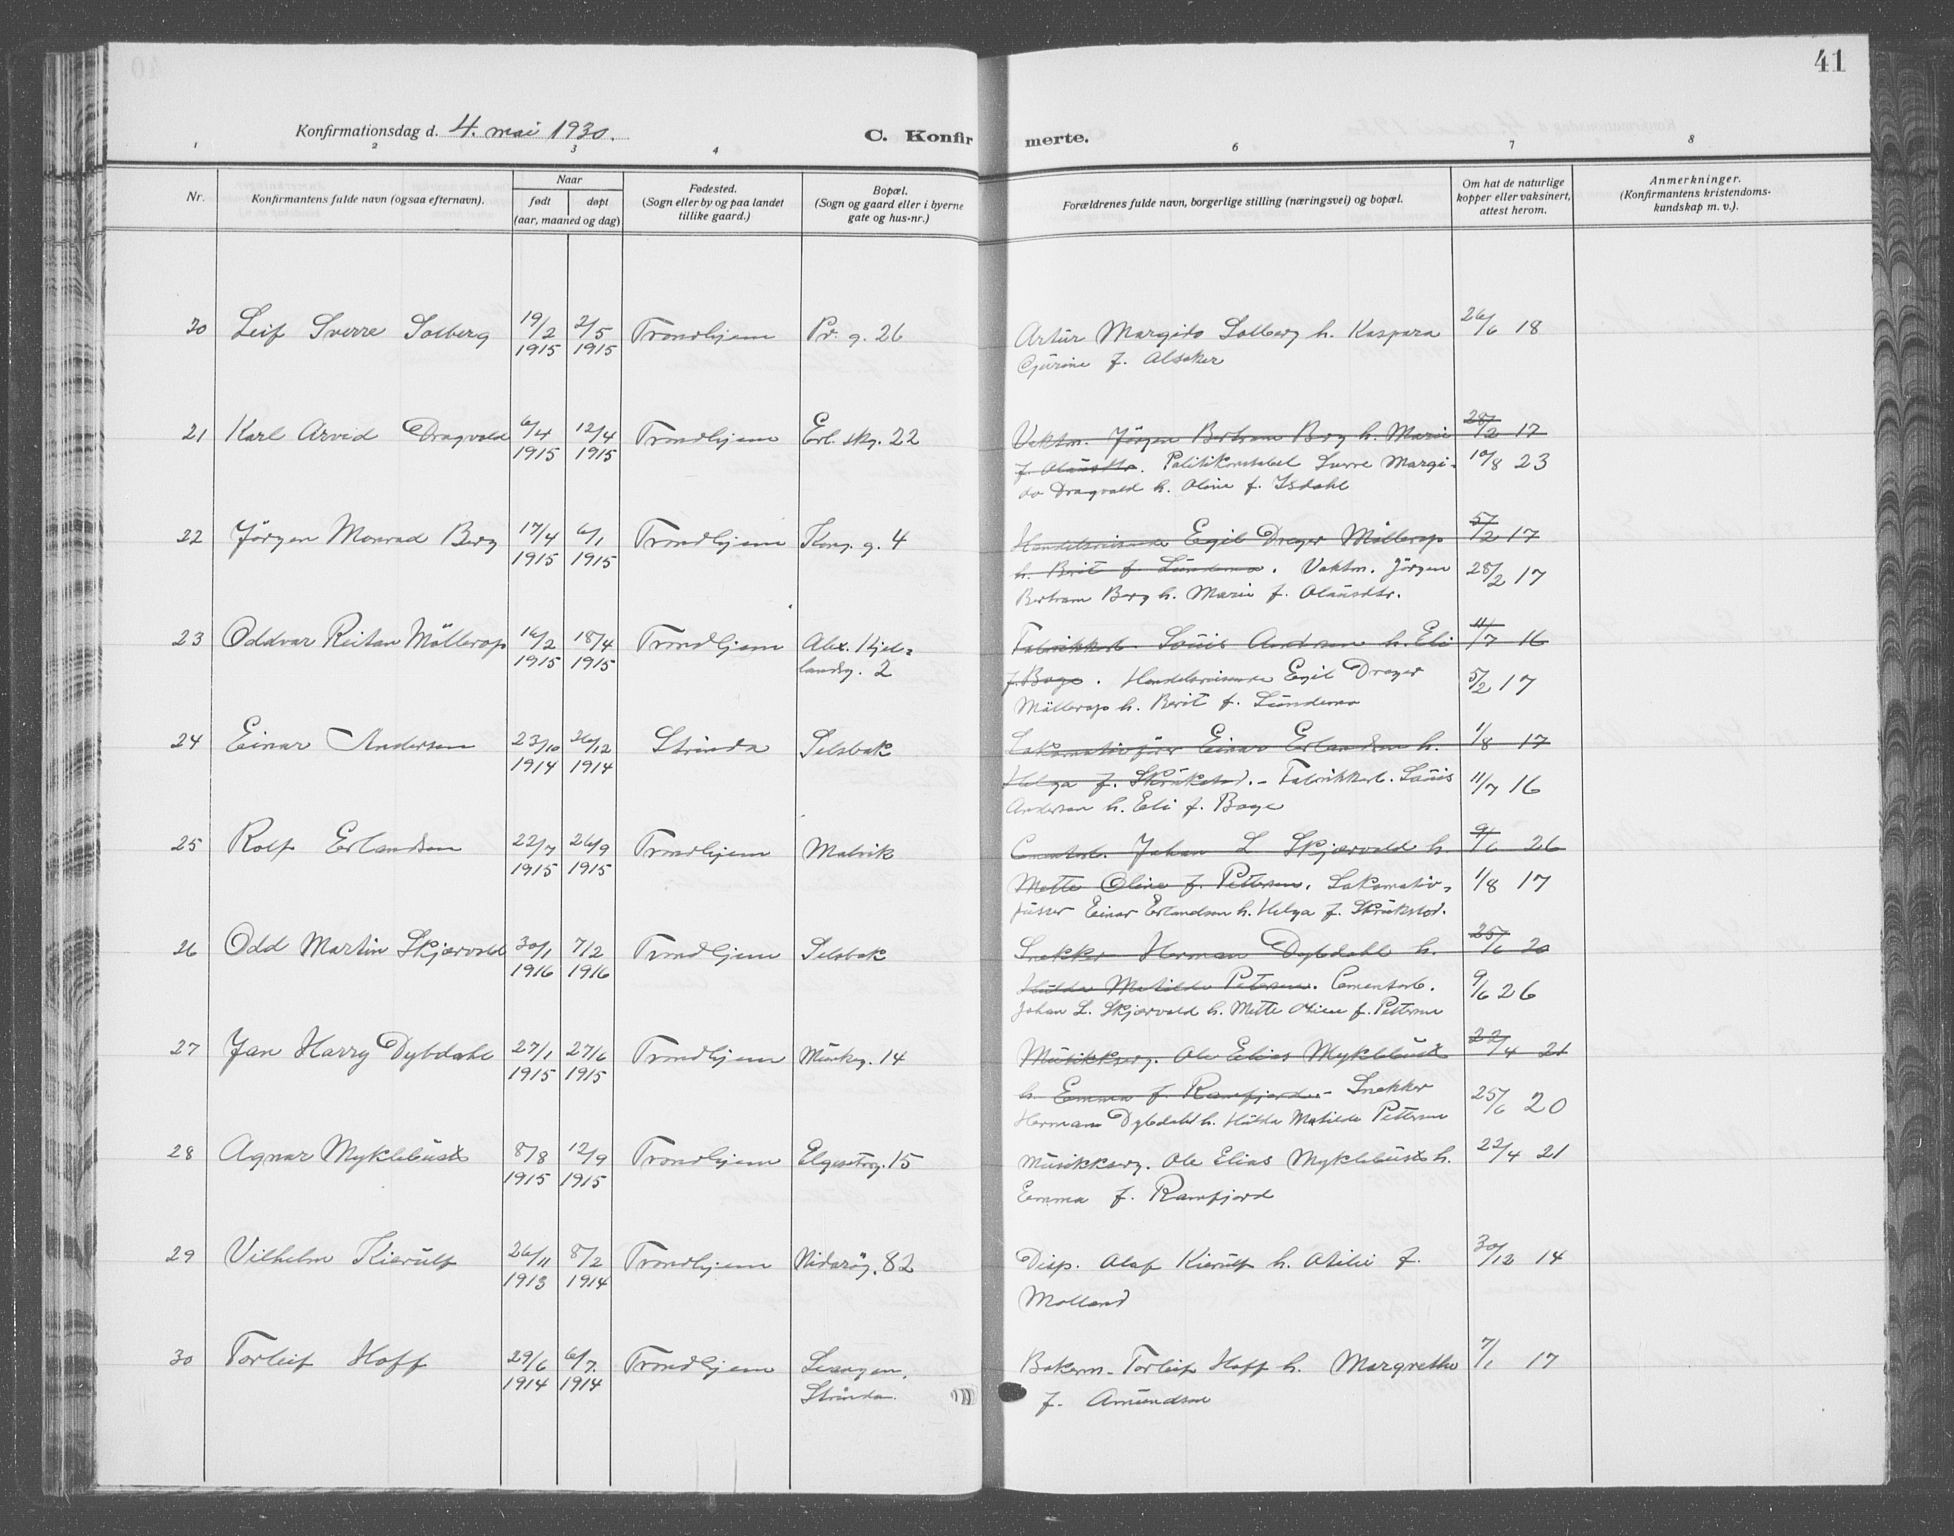 41
Konfirmationsdag d. 4. mai 1930.
C. Konfirmerte.
1 2 3 4 6 7 8
Nr.
Konfirmantens fulde navn (ogsaa efternavn).
Naar
født døpt
(aar, maaned og dag)
Fødested.
(Sogn eller by og paa landet
tillike gaard.)
Bopæl.
(Sogn og gaard eller i byerne
gate og hus-nr.)
Forældrenes fulde navn, borgerlige stilling (næringsvei) og bopæl.
Om hat de naturlige
kopper eller vaksinert,
attest herom.
Anmerkninger.
(Konfirmantens kristendoms-
kundskap m. v.).
20 Leif Sverre Solberg 19/2 2/5 Trondhjem Pr. g. 26 Artur Margido Solberg h. Kaspara 26/6 18
1915 1915 f. Alseker
21 Karl Arvid Dragvold 6/4 12/4 Trondhjem Erl. skg. 22 Vaktm. Jörgen Bertram Berg h. Marie 28/2 17
1915 1915 f. Olausdtr. Politikonstabel Sverre Margi- 10/8 23
do Dragvold h. Oline f. Isdahl
22 Jörgen Monrad Berg 17/4 6/1 Trondhjem Kong. g. 4 Handelsreisende Egil Dreyer Möllerop 5/2 17
1915 1915 h. Berit f. Lundemo. Vaktm. Jörgen 28/2 17
Bertram Berg h. Marie f. Olausdtr.
23 Oddvar Reitan Möllerop 16/2 18/4 Trondhjem Alex. Kjel- Fabrikkarb. Louis Andersen h. Eli 11/7 16
1915 1915 landsg. 2 f. Boge. Handelsreisende Egil Dreyer 5/2 17
Möllerop h. Berit f. Lundemo
24 Einar Andersen 23/10 26/12 Strinda Selsbak Lokomotivfür Einar Erlandsen h. 1/8 17
1914 1914 Helga f. Skrukstad. - Fabrikkarb. Louis 11/7 16
Andersen h. Eli f. Boge
25 Rolf Erlandsen 22/7 26/9 Trondhjem Malvik Cementarb. Johan L Skjærvold h. 9/6 26
1915 1915 Mette Oline f. Pettersen. Lokomotiv- 1/8 17
Einar Erlandsen h. Helga f. Skrukstad.
26 Odd Martin Skjærvold 30/1 7/2 Trondhjem Selsbak Snekker Herman Dybdahl h. 25/6 20
1916 1916 Hulda Matilde Petersen. Cementarb. 9/6 26
Johan L. Skjærvold h. Mette Oline f. Pettersen
27 Jan Harry Dybdahl 27/1 27/6 Trondhjem Munkeg. 14 Musikkserg. Ole Elias Myklebust 22/4 21
1915 1915 h. Emma f. Ramfjord - Snekker 25/6 20
Herman Dybdahl h. Hulda Matilde Pettersen
28 Agnar Myklebust 8/8 12/9 Trondhjem Elgeseterg. 15 Musikkserg. Ole Elias Myklebust h. 22/4 21
1915 1915 Emma f. Ramfjord
29 Vilhelm Kierulf 26/11 8/2 Trondhjem Nidarög. 82 Disp. Olaf Kierulf h. Otilie f. 30/12 14
1913 1914 Molland
30 Torleif Hoff 29/6 6/7 Trondhjem Leangen, Bakerm. Torleif Hoff h. Margrethe 7/1 17
1914 1914 Strinda. f. Amundsen